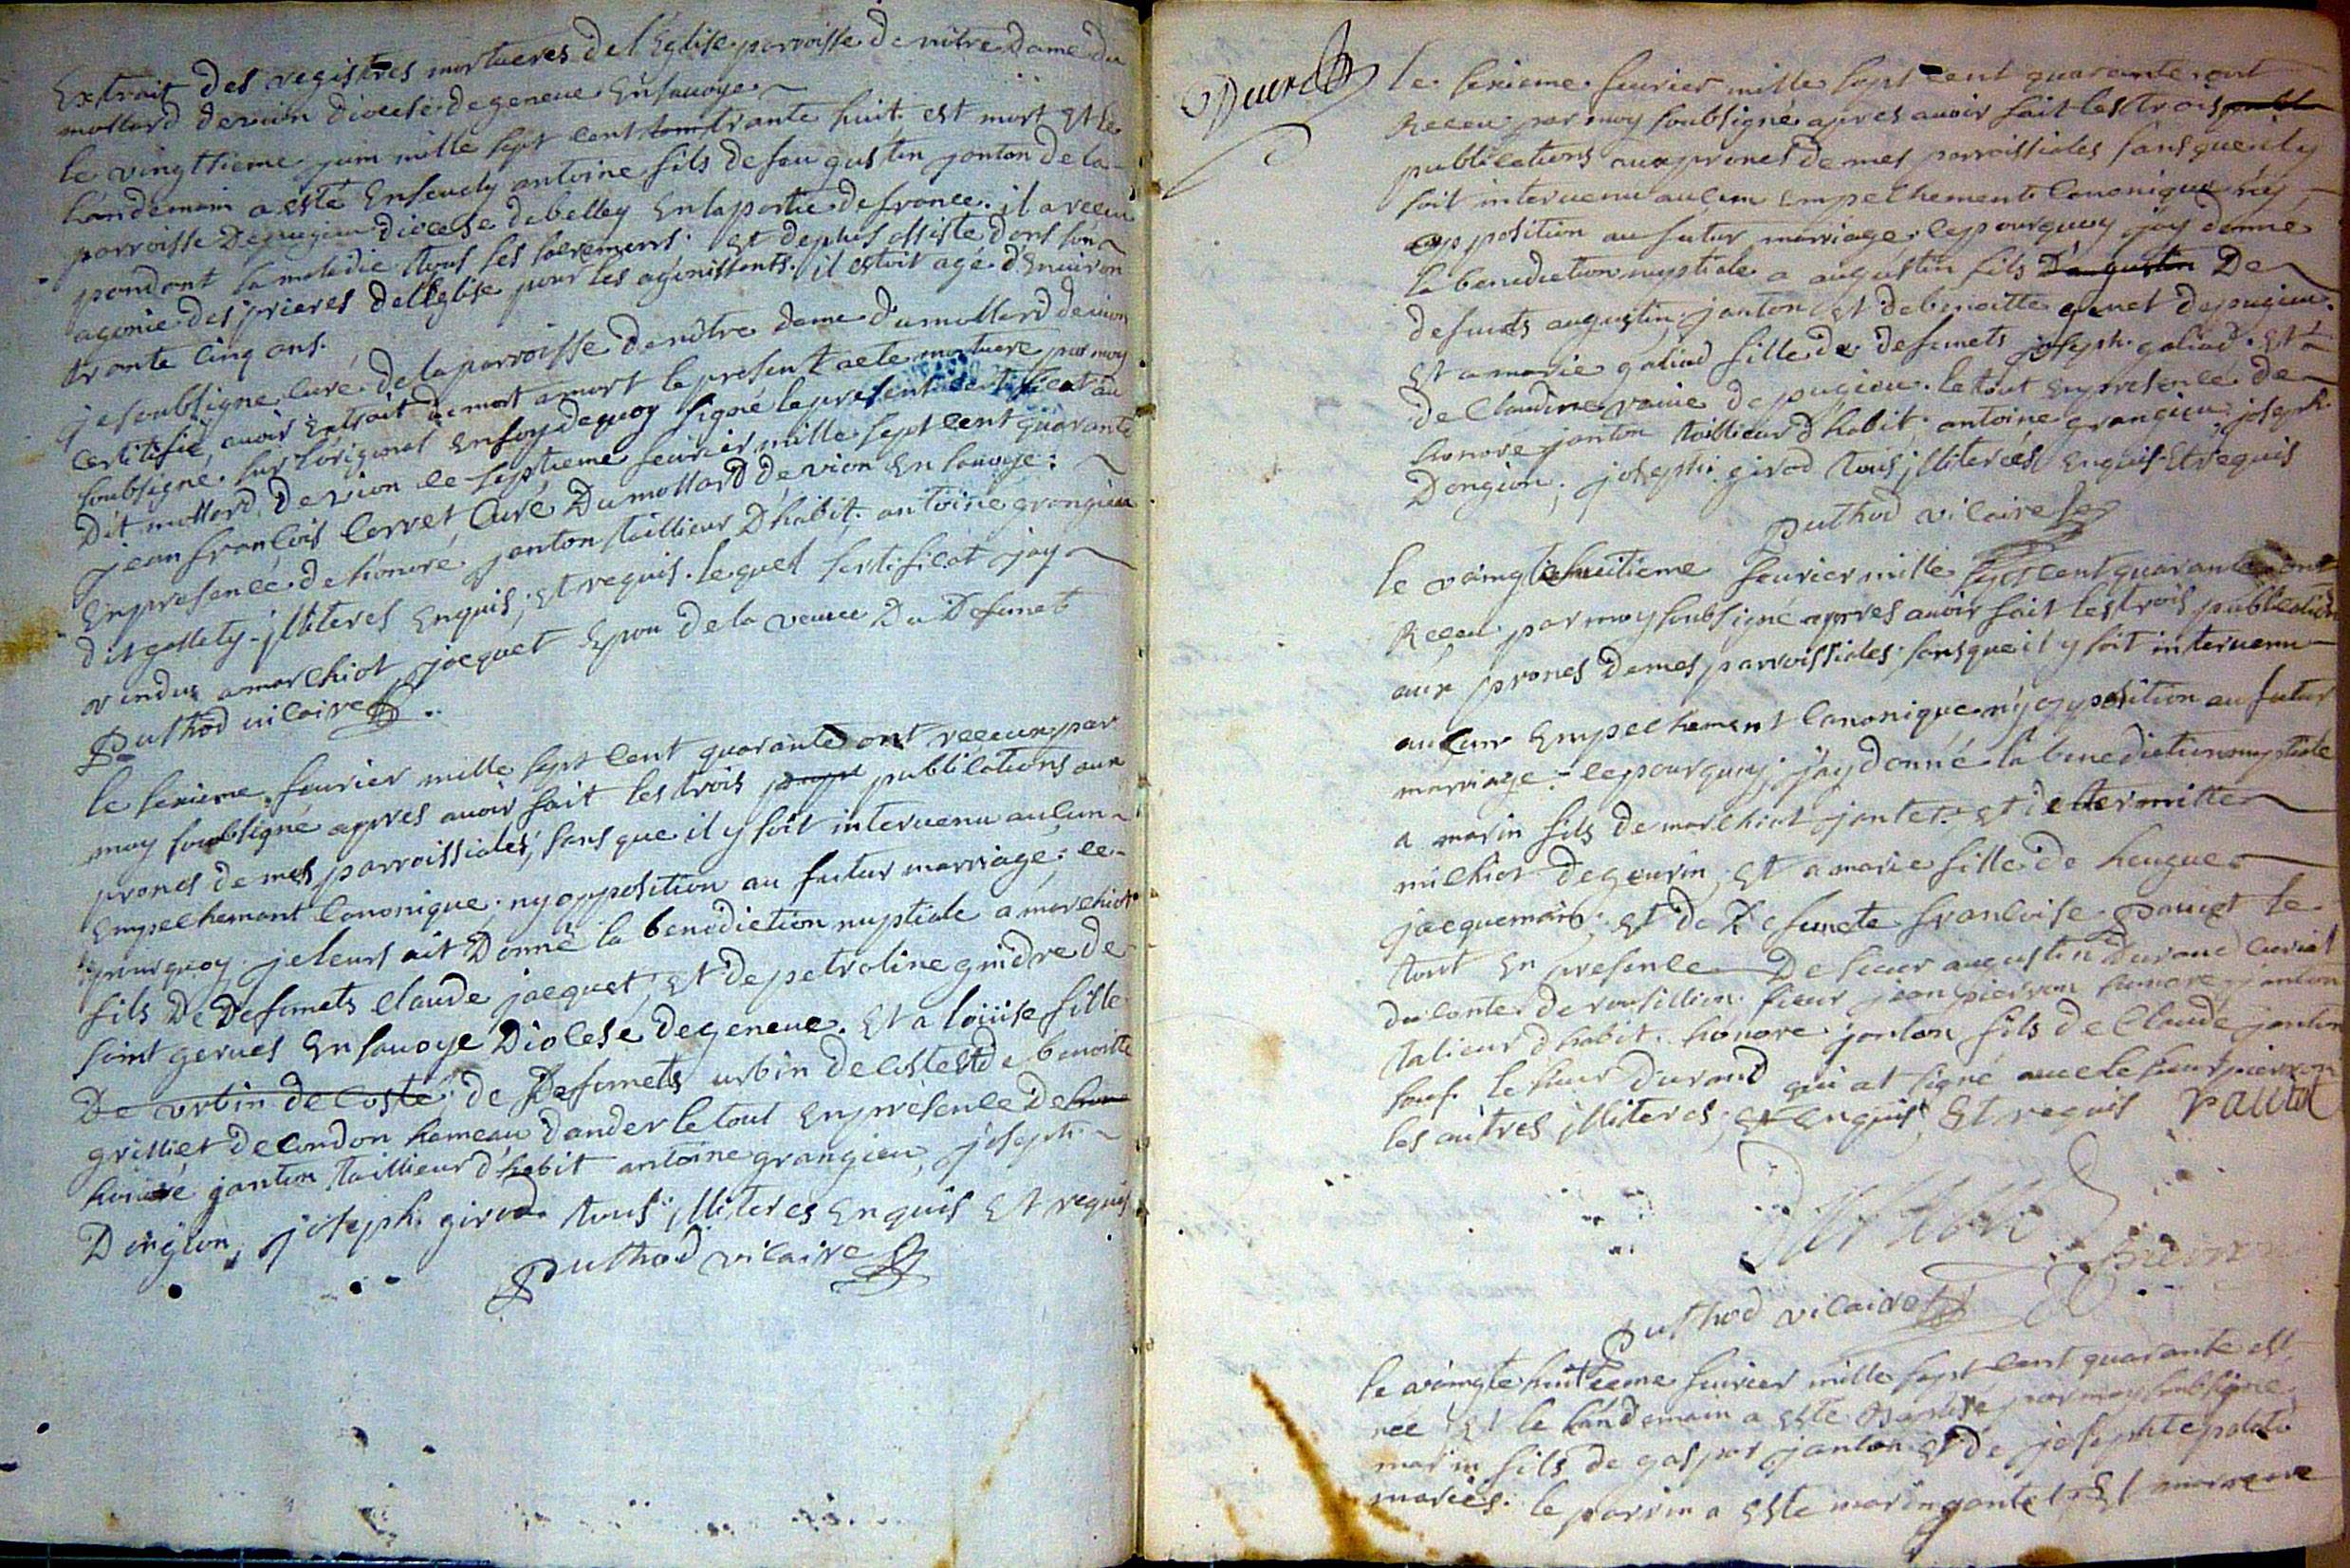 Extrait des registres mortueres de l'Eglise parroisse de nôtre dame du
mollard devion diocese de geneve En savoye
le vingtieme juin mille sept cent trante huit est mort et le
landemain a esté Ensevely antoine fils de feu gustin janton de la
parroisse depugieu diocese debelley En la partie de france. il a receu
pendant sa maladie tous ses sacrements. et deplus assisté dans son
agonie des prieres de l'Eglise pour les agonissants. il estoit age d'Environ
trante cinq ans.
je soubsigne curé de la parroisse de nôtre dame du mollard devion
certifie, avoir Extrait de mort a mort le present acte mortuere par moy
soubsigné sur l'original En foy dequoy signé le present certificat au
dit mollard de vion le septieme fevrier mille sept cent quarante
jean francois Cervet Curé Du mollard de vion En savoye.
En presence de honoré janton taillieur d'habit. antoine grangieu
dit gallety illiteres Enquis, et requis. lequel sertificat jay
rendus a marchiot jacquet Epou de la veuve Du Defunct
Puthod vicaire
le sexieme fevrier mille sept cent quarante ont receu par
moy soubsigné apres avoir fait les trois publications aux
prones de mes parroissiales, sans que il y soit intervenu aulcun
Empechemant Canonique. ny opposition au futur marriage; ce
pourquoy je leurs ait Donné la benediction nuptiale a marchiot
fils De Defuncts claude jacquet, et de petroline guidre de
saint gerves En savoye Diocese de geneve. Et a loüise fille
De urbin de coste de Defuncts urbin de coste et de benoite
grilliet de condon hameau dander le tout En presence de
honoré janton taillieur d'habit antoine grangieu, joseph
Dongion, joseph girod tous illiteres Enquis Et requis
Puthod vicaire
le sexieme fevrier mille sept cent quarante ont
Receu par moy soubsigné apres avoir fait les trois
publications aux prones de mes parroissiales sans que il y
soit intervenu aulcun Empechement Canonique ny
opposition au futur marriage. cepourquoy jay donné
la benediction nuptiale a augustin fils D'augustin De
defuncts augustin janton et de benoitte genet de pugieu.
Et a marie galiad fille de defuncts joseph galiad. et
de Claudine vavie de pugieu. le tout En presence de
honoré janton taillieur d'habit. antoine grangieu, joseph
Dongion, joseph girod tous illiterés Enquis Et requis
Puthod vicaire
le vaingtehuitieme fevrier mille sept cent quarante ont
Receu par moy soubsigné apres avoir fait les trois publications
aux prones de mes parroissiales, sans que il y soit intervenu
aulcun Empechemant Canonique ny opposition au futur
marriage. cepourquoy jay donné la benediction nuptiale
a marin fils de marchiot jantet. et de
michiot de, et a marie fille de hugue
jacquemain; et de Defuncte francoise pavict le
tout En presence De sieur augustin Durand curial
du conter de rousillion. sieur jean pierron honoré janton
talieur d'habit. honore janton fils de Claude janton
sauf le sieur Durand qui at signé avec le sieur pierron
les autres illiteres, Et Enquis, Et requis
Puthod vicaire
le vaingte huitieme fevrier mille sept cent quarante est
née Et le landemain a esté Baptisé par moy soubsigné
marin fils de gaspar janton et de josephte
mariés. le parrin a Este marin jantet, Et marrene